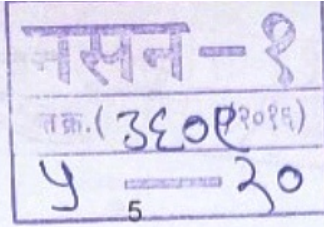 नसन-१
त क्र.( ३६०९/२०१६)
५ — ३०
5